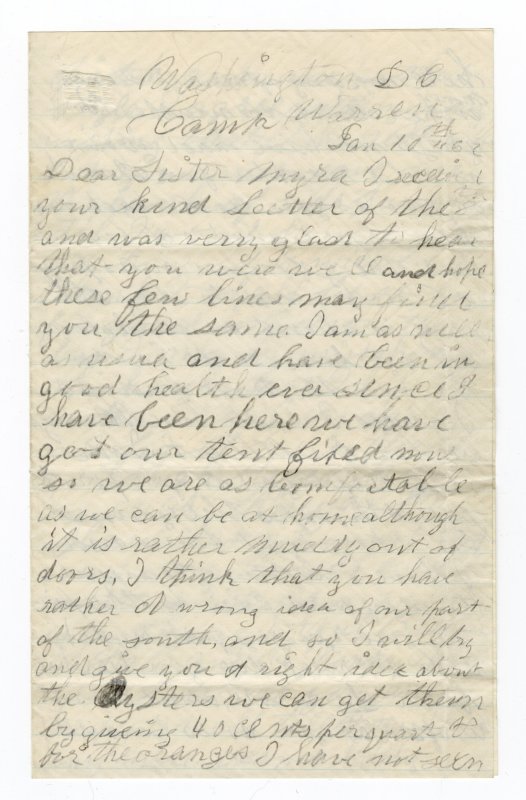 Washington D C
Camp Warren
Jan 10th 62
Dear Sister Myra I recei
your kind Leitter of the
and was verry glad to hear
that you were well and hope
these few lines may find
you the same I am as well
as usual and have been in
good health ever since I
have been here we have
got our tent fixed now
so we are as Comfortable
as we can be at home although
it is rather muddy out of
doors. I think that you have
rather A wrong idea of our part
of the south, and so I will try
and give you A right idea about
the Oysters we can get them
by giveing 40 cents per quart &
for the oranges I have not seen